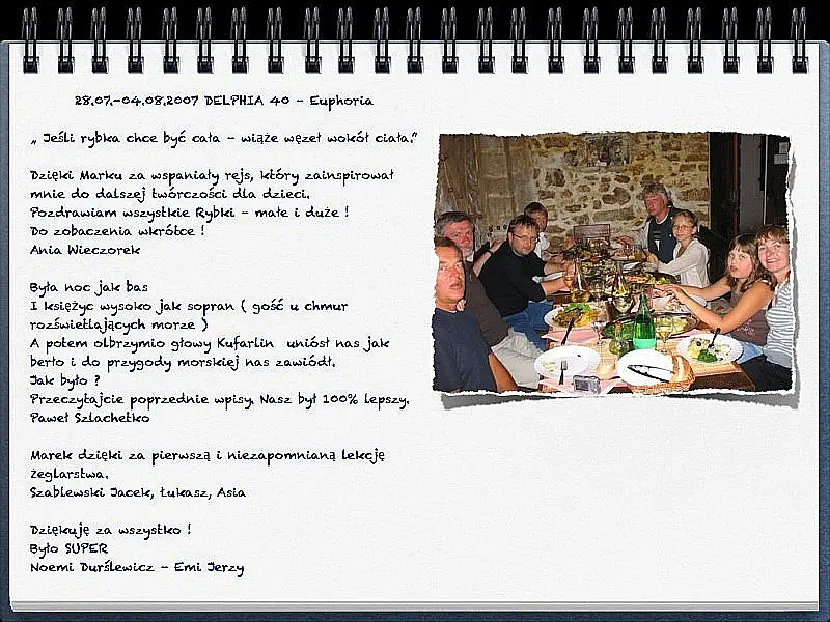 28.07.-04.08.2007 DELPHIA 40 - Euphoria
„ Jeśli rybka chce być cała - wiąże węzeł wokół ciała."
Dzięki Marku za wspaniały rejs, który zainspirował
mnie do dalszej twórczości dla dzieci.
Pozdrawiam wszystkie Rybki = małe i duże !
Do zobaczenia wkrótce !
Ania Wieczorek
Była noc jak bas
I księżyc wysoko jak sopran ( gość u chmur
rozświetlających morze )
A potem olbrzymio głowy Kufarlin uniósł nas jak
berło i do przygody morskiej nas zawiódł.
Jak było ?
Przeczytajcie poprzednie wpisy. Nasz był 100% lepszy.
Paweł Szlachetko
Marek dzięki za pierwszą i niezapomnianą lekcję
żeglarstwa.
Szablewski Jacek, Łukasz, Asia
Dziękuję za wszystko !
Było SUPER
Noemi Durślewicz - Emi Jerzy